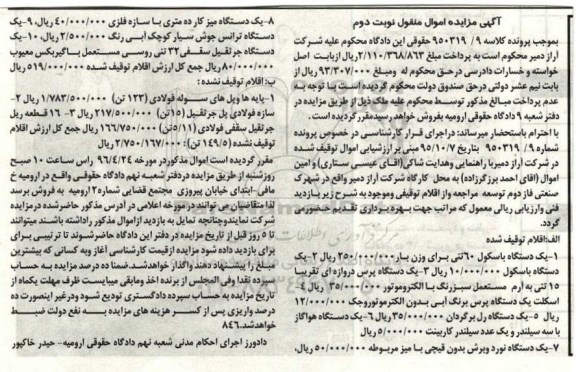 آگهی مزایده اموال منقول نوبت دوم
بموجب پرونده کلاسه ۹/ ۹۵۰۳۱۹ حقوقی این دادگاه محکوم علیه شرکت
آراز دمیر محکوم است به پرداخت مبلغ ۲/۱۱۰/۳۶۸/۸۶۳ ریال ازبابت اصل
خواسته و خسارات دادرسی در حق محکوم له ومبلغ ۹۳/۳۰۷/۰۰۰ ریال از
بابت نیم عشر دولتی درحق صندوق دولت محکوم گردیده است با توجه به
عدم پرداخت مبالغ مذکور توسط محکوم علیه ملک ذیل از طریق مزایده در
دفتر شعبه ۹ دادگاه حقوقی ارومیه بفروش خواهد رسیدمقرر گردیده است.
با احترام باستحضار میرساند: دراجرای قرار کارشناسی در خصوص پرونده
شماره ۹/ ۹۵۰۳۱۹ بتاریخ ۹۵/۱۰/۷ مبنی بر ارزشیابی اموال توقیف شده
در شرکت آراز دمیربا راهنمایی وهدایت شاکی(اقای عیسی ستاری) و امین
اموال (اقای احمد برزگرزاده) به محل کارگاه شرکت آراز دمیر واقع در شهرک
صنعتی فاز دوم توسعه مراجعه واز اقلام توقیفی وموجود به شرح زیر بازدید
فنی وارزیابی ریالی معمول که مراتب جهت بهره برداری تقدیم حضورمی
گردد.
الف:اقلام توقیف شده
۱-یک دستگاه باسکول ۶۰تنی برای وزن بار ۲۵۰/۰۰۰/۰۰۰ ریال ۲-یک
دستگاه باسکول ۱۰/۰۰۰/۰۰۰ ریال ۳-یک دستگاه پرس دروازه ای تقریبا
۱۵ تنی به ارم مستعمل سبزرنگ با الکتروموتور ۳۵/۰۰۰/۰۰۰ ریال ۴-
اسکلت یک دستگاه پرس برنگ آبی بدون الکتروموتوروجک ۱۲/۰۰۰/۰۰۰
ریال ۵-یک دستگاه رل برگردان ۳۵/۰۰۰/۰۰۰ ریال ۶-یک دستگاه هواگاز
با سه سیلندر و یک عدد سیلندر کاربینت ۵/۰۰۰/۰۰۰ ریال
۷-یک دستگاه نورد وبرش بدون قیچی با میز مربوطه ۵۰/۰۰۰/۰۰۰ ریال،
۸-یک دستگاه میز کار ده متری با سازه فلزی ۴۰/۰۰۰/۰۰۰ ریال، ۹-یک
دستگاه ترانس جوش سیار کوچک آبی رنگ ۲/۵۰۰/۰۰۰ ریال، ۱۰-یک
دستگاه جرثقیل سقفی ۳۲ تنی روسی مستعمل باگیربکس معیوب
۸۰/۰۰۰/۰۰۰ ریال جمع کل ارزش اقلام توقیف شده ۵۱۹/۰۰۰/۰۰۰ ریال
ب: اقلام توقیف نشده:
۱-پایه ها وپل های سوله فولادی (۱۲۳ تن) ۱/۷۸۳/۵۰۰/۰۰۰ ریال ۲-
سازه فولادی پل جرثقیل (۱۵تن) ۲۱۷/۵۰۰/۰۰۰ ریال ۳- ۱۶ قطعه ریل
جرثقیل سقفی فولادی (۱۱/۵تن) ۱۶۶/۷۵۰/۰۰۰ ریال جمع کل ارزش اقلام
توقیف نشده (۱۴۹/۵ تن) ۲/۷۵۰/۱۶۷/۰۰۰ ریال.
مقرر گردیده است اموال مذکوردر مورخه ۹۶/۴/۲۴ راس ساعت ۱۰ صبح
روزشنبه از طریق مزایده دردفتر شعبه نهم دادگاه حقوقی واقع در ارومیه خ
مافی-ابتدای خیابان پیروزی مجتمع قضایی شماره۲ ارومیه به فروش برسد
لذا متقاضیان می توانند در مورخه اعلامی در آدرس مذکور حاضر شده درمزایده
شرکت نمایندوچنانچه تمایل به بازدید ازاموال مذکور راداشته باشند میتوانند
تا ۵ روز قبل از تاریخ مزایده در دفتر این دادگاه حاضرشوند تا ترتیبی برای
برای بازدید داده شود مزایده ازقیمت کارشناسی آغاز وبه کسانی که بیشترین
مبلغ را پیشنهاد دهند واگذار خواهدشد.ضمنا ده درصد مزایده به حساب
سپرده نقدا وفی المجلس از برنده اخذ ومابقی میبایست ظرف مهلت یکماه از
تاریخ مزایده به حساب سپرده دادگستری تودیع شود ودرغیر اینصورت ده
درصد واریزی پس از کسر هزینه های مزایده به نفع دولت ضبط
خواهدشد.۸۴۶
دادورز اجرای احکام مدنی شعبه نهم دادگاه حقوقی ارومیه- حیدر خاکپور